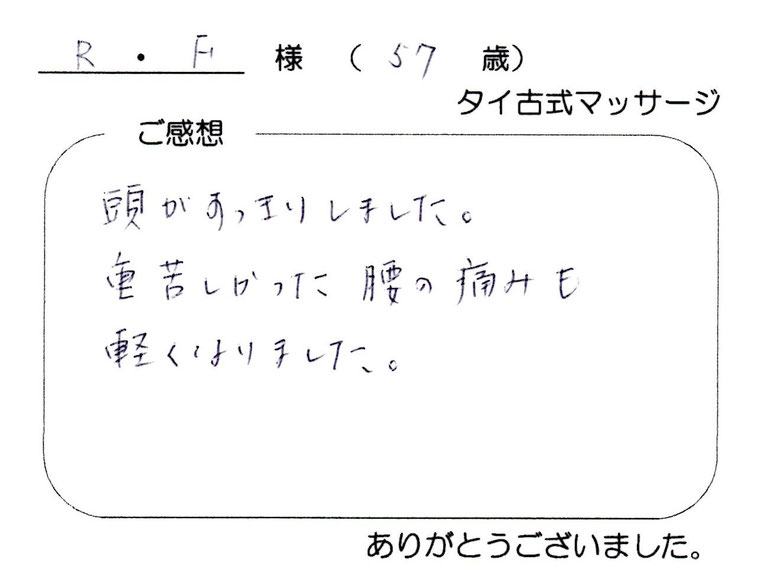 R・F 様 (57 歳)
タイ古式マッサージ
ご感想
頭がすっきりしました。
重苦しかった腰の痛みも
軽くなりました。
ありがとうございました。